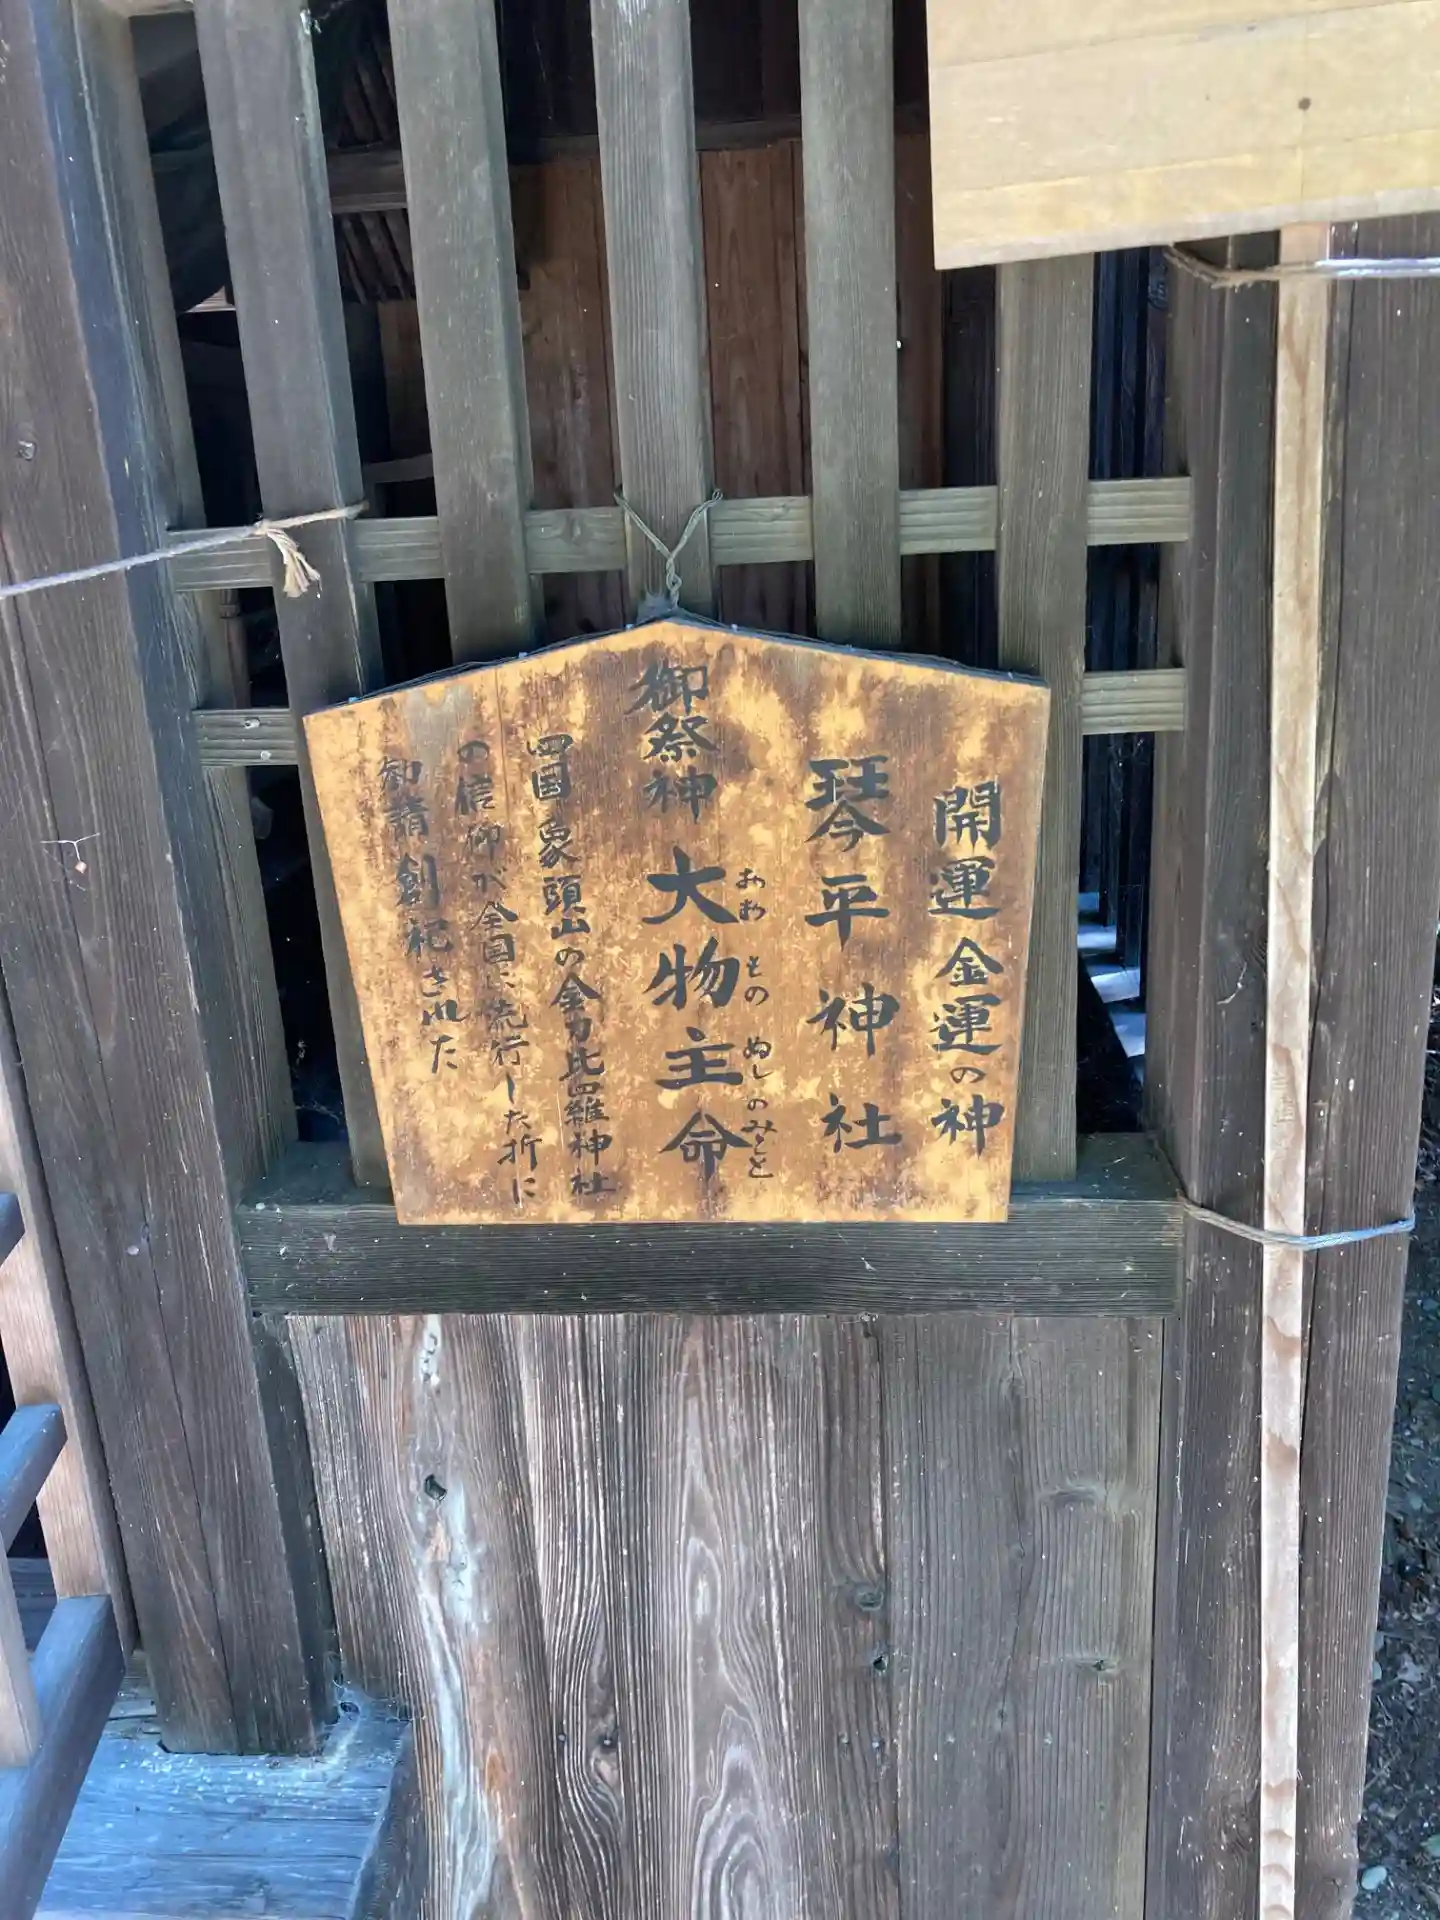 開運金運の神
琴平神社
御祭神 大物主命
おお もの ぬしのみこと
四国象頭山の金刀比羅神社
の信仰が全国に流行した折に
勧請創祀された